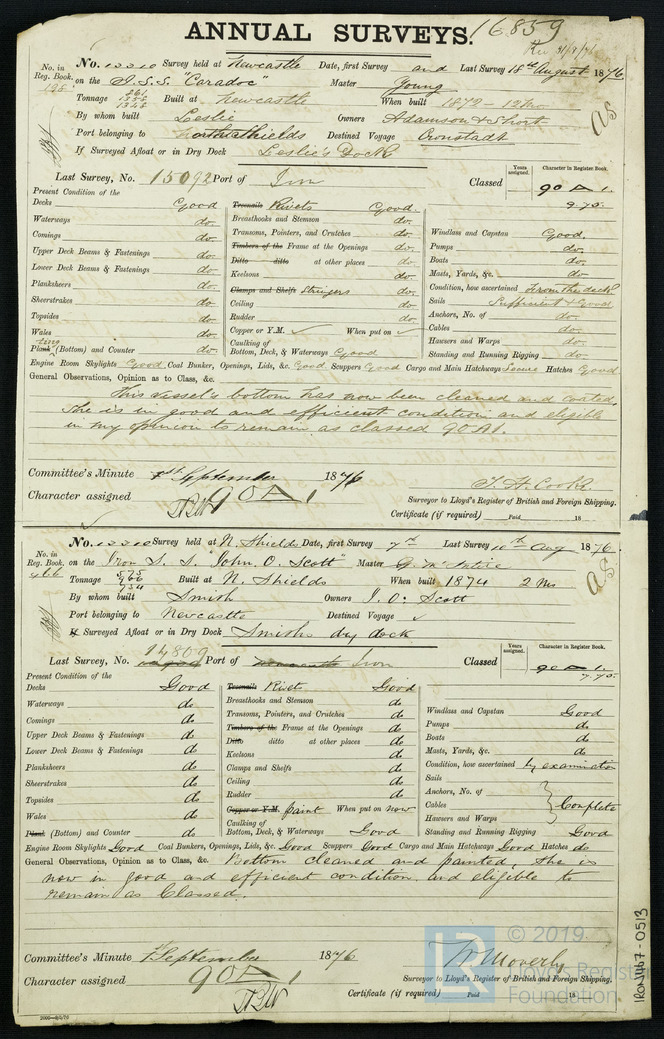 ANNUAL SURVEYS. 16859
No. in Reg. Book. No. Survey held at Newcastle Date, first Survey and Last Survey 18th August 1876
on the I.S.S. "Caradoc" Master Young
Tonnage 861 1355 1348 Built at Newcastle When built 1872-12mo
By whom built Leslie Owners Adamson & Short
Port belonging to North Shields Destined Voyage Cronstadt
If Surveyed Afloat or in Dry Dock Leslie's Dock
Last Survey, No. 15092 Port of Iron Classed Years assigned. Character in Register Book. 90 A 1.
9.75.
Present Condition of the
Decks Good Treenails Rivets Good
Waterways do. Breasthooks and Stemson do. Windlass and Capstan Good
Comings do. Transoms, Pointers, and Crutches do. Pumps do.
Upper Deck Beams & Fastenings do. Timbers of the Frame at the Openings do. Boats do.
Lower Deck Beams & Fastenings do. Ditto ditto at other places do. Masts, Yards, &c. do.
Planksheers do. Keelsons do. Condition, how ascertained From the deck
Sheerstrakes do. Clamps and Shelfs Stringers do. Sails Sufficient & Good
Topsides do. Ceiling do. Anchors, No. of do.
Wales do. Rudder do. Cables do.
Plating (Bottom) and Counter do. Copper or Y.M. ✓ When put on ✓ Hawsers and Warps do.
Caulking of Bottom, Deck, & Waterways Good Standing and Running Rigging do.
Engine Room Skylights Good Coal Bunker, Openings, Lids, &c. Good Scuppers Good Cargo and Main Hatchways Secure Hatches Good
General Observations, Opinion as to Class, &c.
This vessel's bottom has now been cleaned and coated,
She is in good and efficient condition and eligible
in my opinion to remain as classed 90 A1.
Committee's Minute 1st September 1876
T. H. Cooke
Character assigned 90 A 1 Surveyor to Lloyd's Register of British and Foreign Shipping.
Certificate (if required) Paid 18
No. in Reg. Book. 466 No. Survey held at N. Shields Date, first Survey 7th Last Survey 10th Aug 1876.
on the Iron S. S. "John O. Scott" Master G. McIntire
Tonnage 575 966 734 Built at N. Shields When built 1874 2 Ms
By whom built Smith Owners J. O. Scott
Port belonging to Newcastle Destined Voyage ✓
If Surveyed Afloat or in Dry Dock Smiths dry dock
Last Survey, No. 14809 Port of Iron Classed Years assigned. Character in Register Book. 90 A 1.
7.75.
Present Condition of the
Decks Good Treenails Rivet Good
Waterways do Breasthooks and Stemson do Windlass and Capstan Good
Comings do Transoms, Pointers, and Crutches do Pumps do
Upper Deck Beams & Fastenings do Timbers of the Frame at the Openings do Boats do
Lower Deck Beams & Fastenings do Ditto ditto at other places do Masts, Yards, &c. do
Planksheers do Keelsons do Condition, how ascertained by examination
Sheerstrakes do Clamps and Shelfs do Sails
Topsides do Ceiling do Anchors, No. of
Wales do Rudder do Cables Complete
Plank (Bottom) and Counter do Copper or Y.M. paint When put on now Hawsers and Warps
Caulking of Bottom, Deck, & Waterways Good Standing and Running Rigging Good
Engine Room Skylights Good Coal Bunkers, Openings, Lids, &c. Good Scuppers Good Cargo and Main Hatchways Good Hatches do
General Observations, Opinion as to Class, &c. Bottom cleaned and painted, she is
now in good and efficient condition, and eligible to
remain as Classed.
Committee's Minute 1st September 1876
W Moverly
Character assigned 90 A 1 Surveyor to Lloyd's Register of British and Foreign Shipping.
Certificate (if required) Paid 18
© 2019
Lloyd's Register
Foundation
IRON467-0513